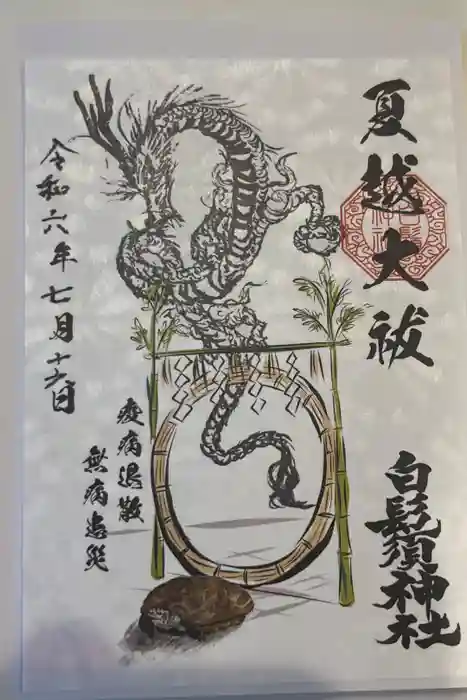 夏越大祓
白髭須神社
令和六年七月十六日
疫病退散
無病息災